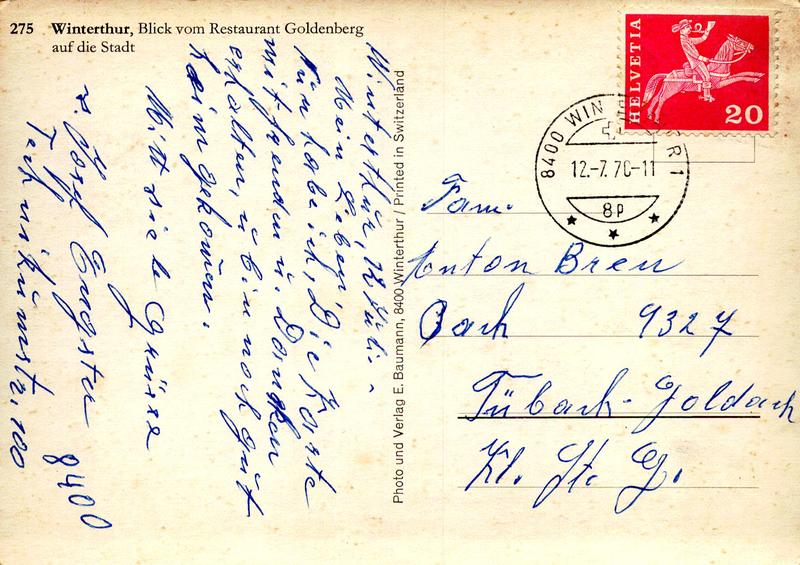 275 Winterthur, Blick vom Restaurant Goldenberg
auf die Stadt
HELVETIA
20
8400 WINTERTHUR 1
12.-7.70-11
8P
Winterthur, 12 Juli.
Mein Lieben,
Nun habe ich, Die Karte
mit freuden u. Danken
erhalten, u bin noch gut
heim gekommen.
Mitt viele Grüsse
Josef Engster
Teknikumstr, 100
8400
Photo und Verlag E. Baumann, 8400 Winterthur / Printed in Switzerland
Fam.
Anton Breu
Bach 9327
Tübach-Goldach
Kt. St. G.